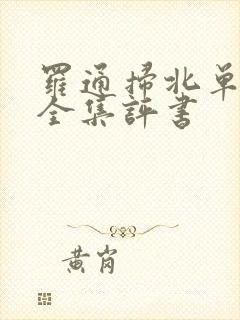 羅通掃北单
全集評書
黄岗